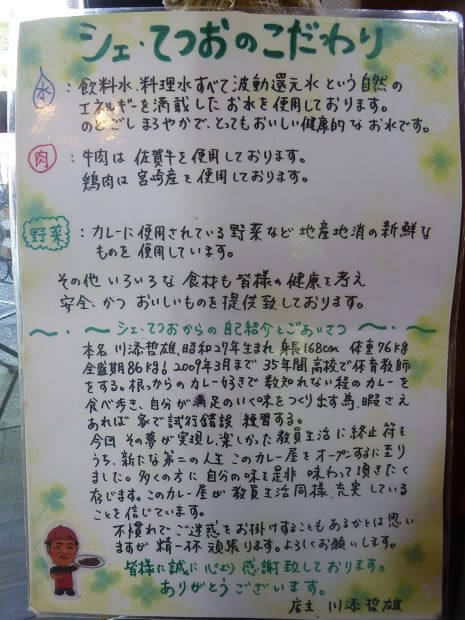 シェ・てつおのこだわり
水：飲料水、料理水すべて波動還元水という自然の
エネルギーを満載したお水を使用しております。
のどごしまろやかで、とってもおいしい健康的なお水です。
肉：牛肉は佐賀牛を使用しております。
鶏肉は宮崎産を使用しております。
野菜：カレーに使用されている野菜など地産地消の新鮮な
ものを使用しています。
その他いろいろな食材も皆様の健康を考え
安全、かつおいしいものを提供致しております。
〜・〜・シェ・てつおからの自己紹介とごあいさつ〜・〜・
本名 川添哲雄、昭和27年生まれ 身長168cm 体重76kg
全盛期86kg！ 2009年3月まで35年間高校で体育教師
をする。根っからのカレー好きで数知れない程のカレーを
食べ歩き、自分が満足のいく味をつくり出す為、暇さえ
あれば家で試行錯誤 練習する。
今回その夢が実現し、楽しかった教員生活に終止符を
うち、新たな第二の人生このカレー屋をオープンするに至り
ました。多くの方に自分の味を是非味わって頂きたく
存じます。このカレー屋が教員生活同様、充実している
ことを信じています。
不慣れでご迷惑をお掛けすることもあるかとは思い
ますが精一杯頑張ります。よろしくお願いします。
皆様に誠に心より感謝致しております。
ありがとうございます。
店主 川添哲雄